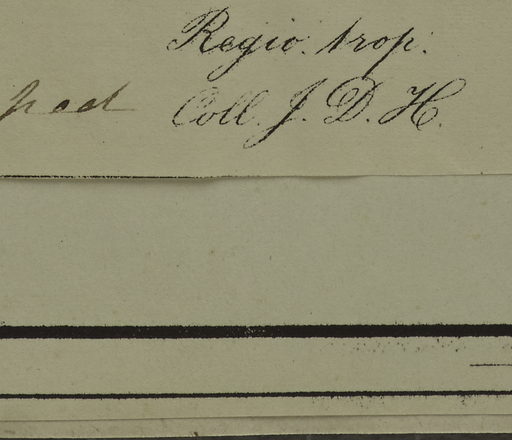 Regio. trop.
ped Coll. J. D. H.